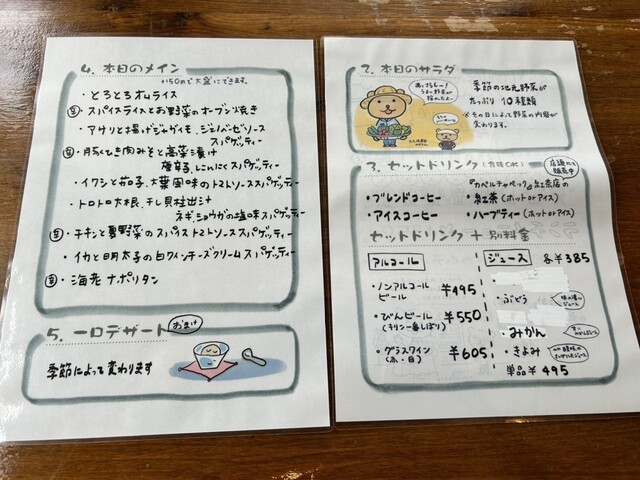 4. 本日のメイン
¥150円で大盛にできます。
・とろとろオムライス
・スパイスライスとお野菜のオーブン焼き
・アサリと揚げジャガイモ、ジェノベーゼソース
スパゲッティー
・豚ひき肉みそと高菜漬け
唐辛子、にんにくスパゲッティー
・イワシと茄子、大葉風味のトマトソーススパゲッティー
・トロトロ大根、干し貝柱出汁
ネギ、ショウガの塩味スパゲッティー
・チキンと夏野菜のスパイストマトソーススパゲッティー
・イカと明太子の白ワインチーズクリームスパゲッティー
・海老ナポリタン
5. 一口デザート おまけ
季節によって変わります
2. 本日のサラダ
季節の地元野菜が
たっぷり 10種類
※その日によって野菜の内容が
変わります。
3. セットドリンク
店頭にて
販売中
・ブレンドコーヒー
・アイスコーヒー
『カペルチャペック』紅茶店の
・紅茶(ホット or アイス)
・ハーブティー(ホット or アイス)
セットドリンク + 別料金
アルコール
・ノンアルコール
ビール ¥495
・びんビール ¥550
(キリン一番しぼり)
・グラスワイン ¥605
(赤・白)
ジュース 各¥385
・ぶどう
・みかん
・きよみ
単品¥495